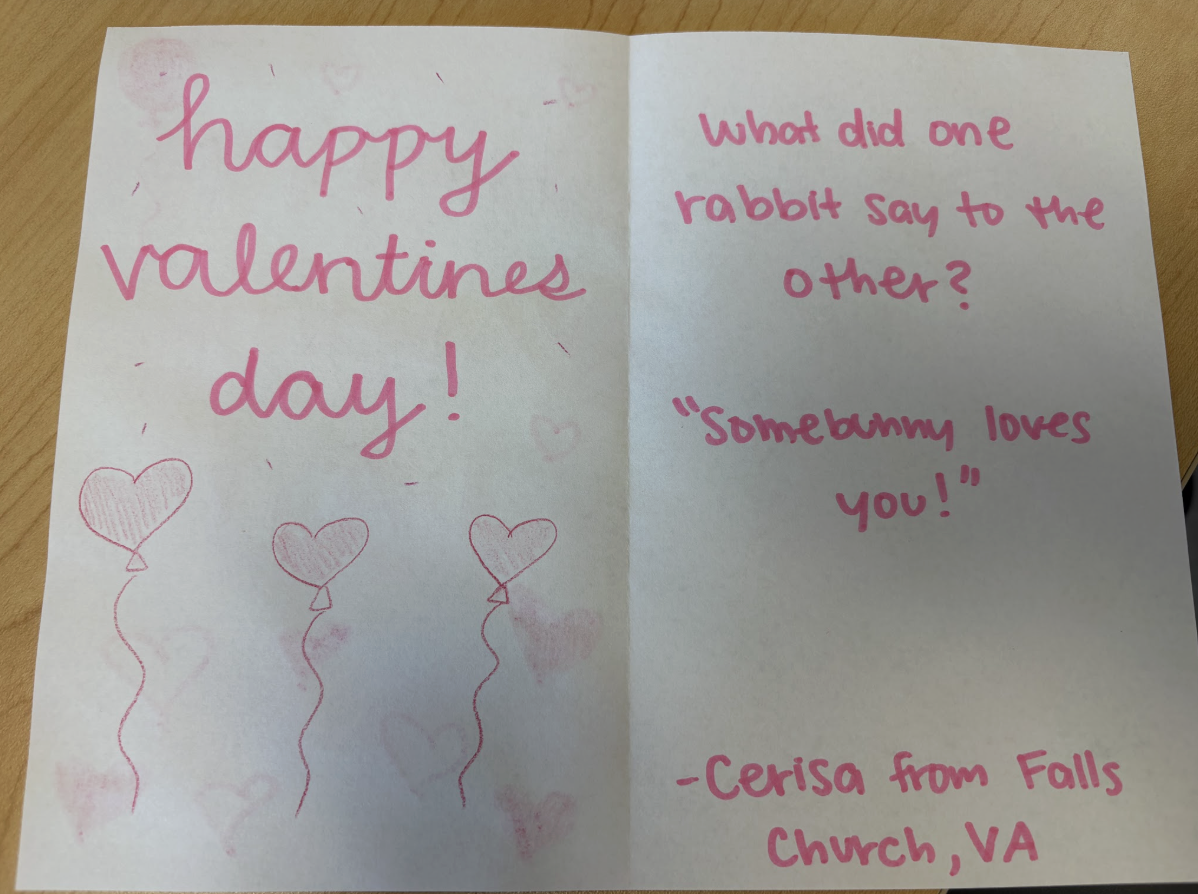 happy
valentines
day!
What did one
rabbit say to the
other?
"Somebunny loves
you!"
-Cerisa from Falls
Church, VA